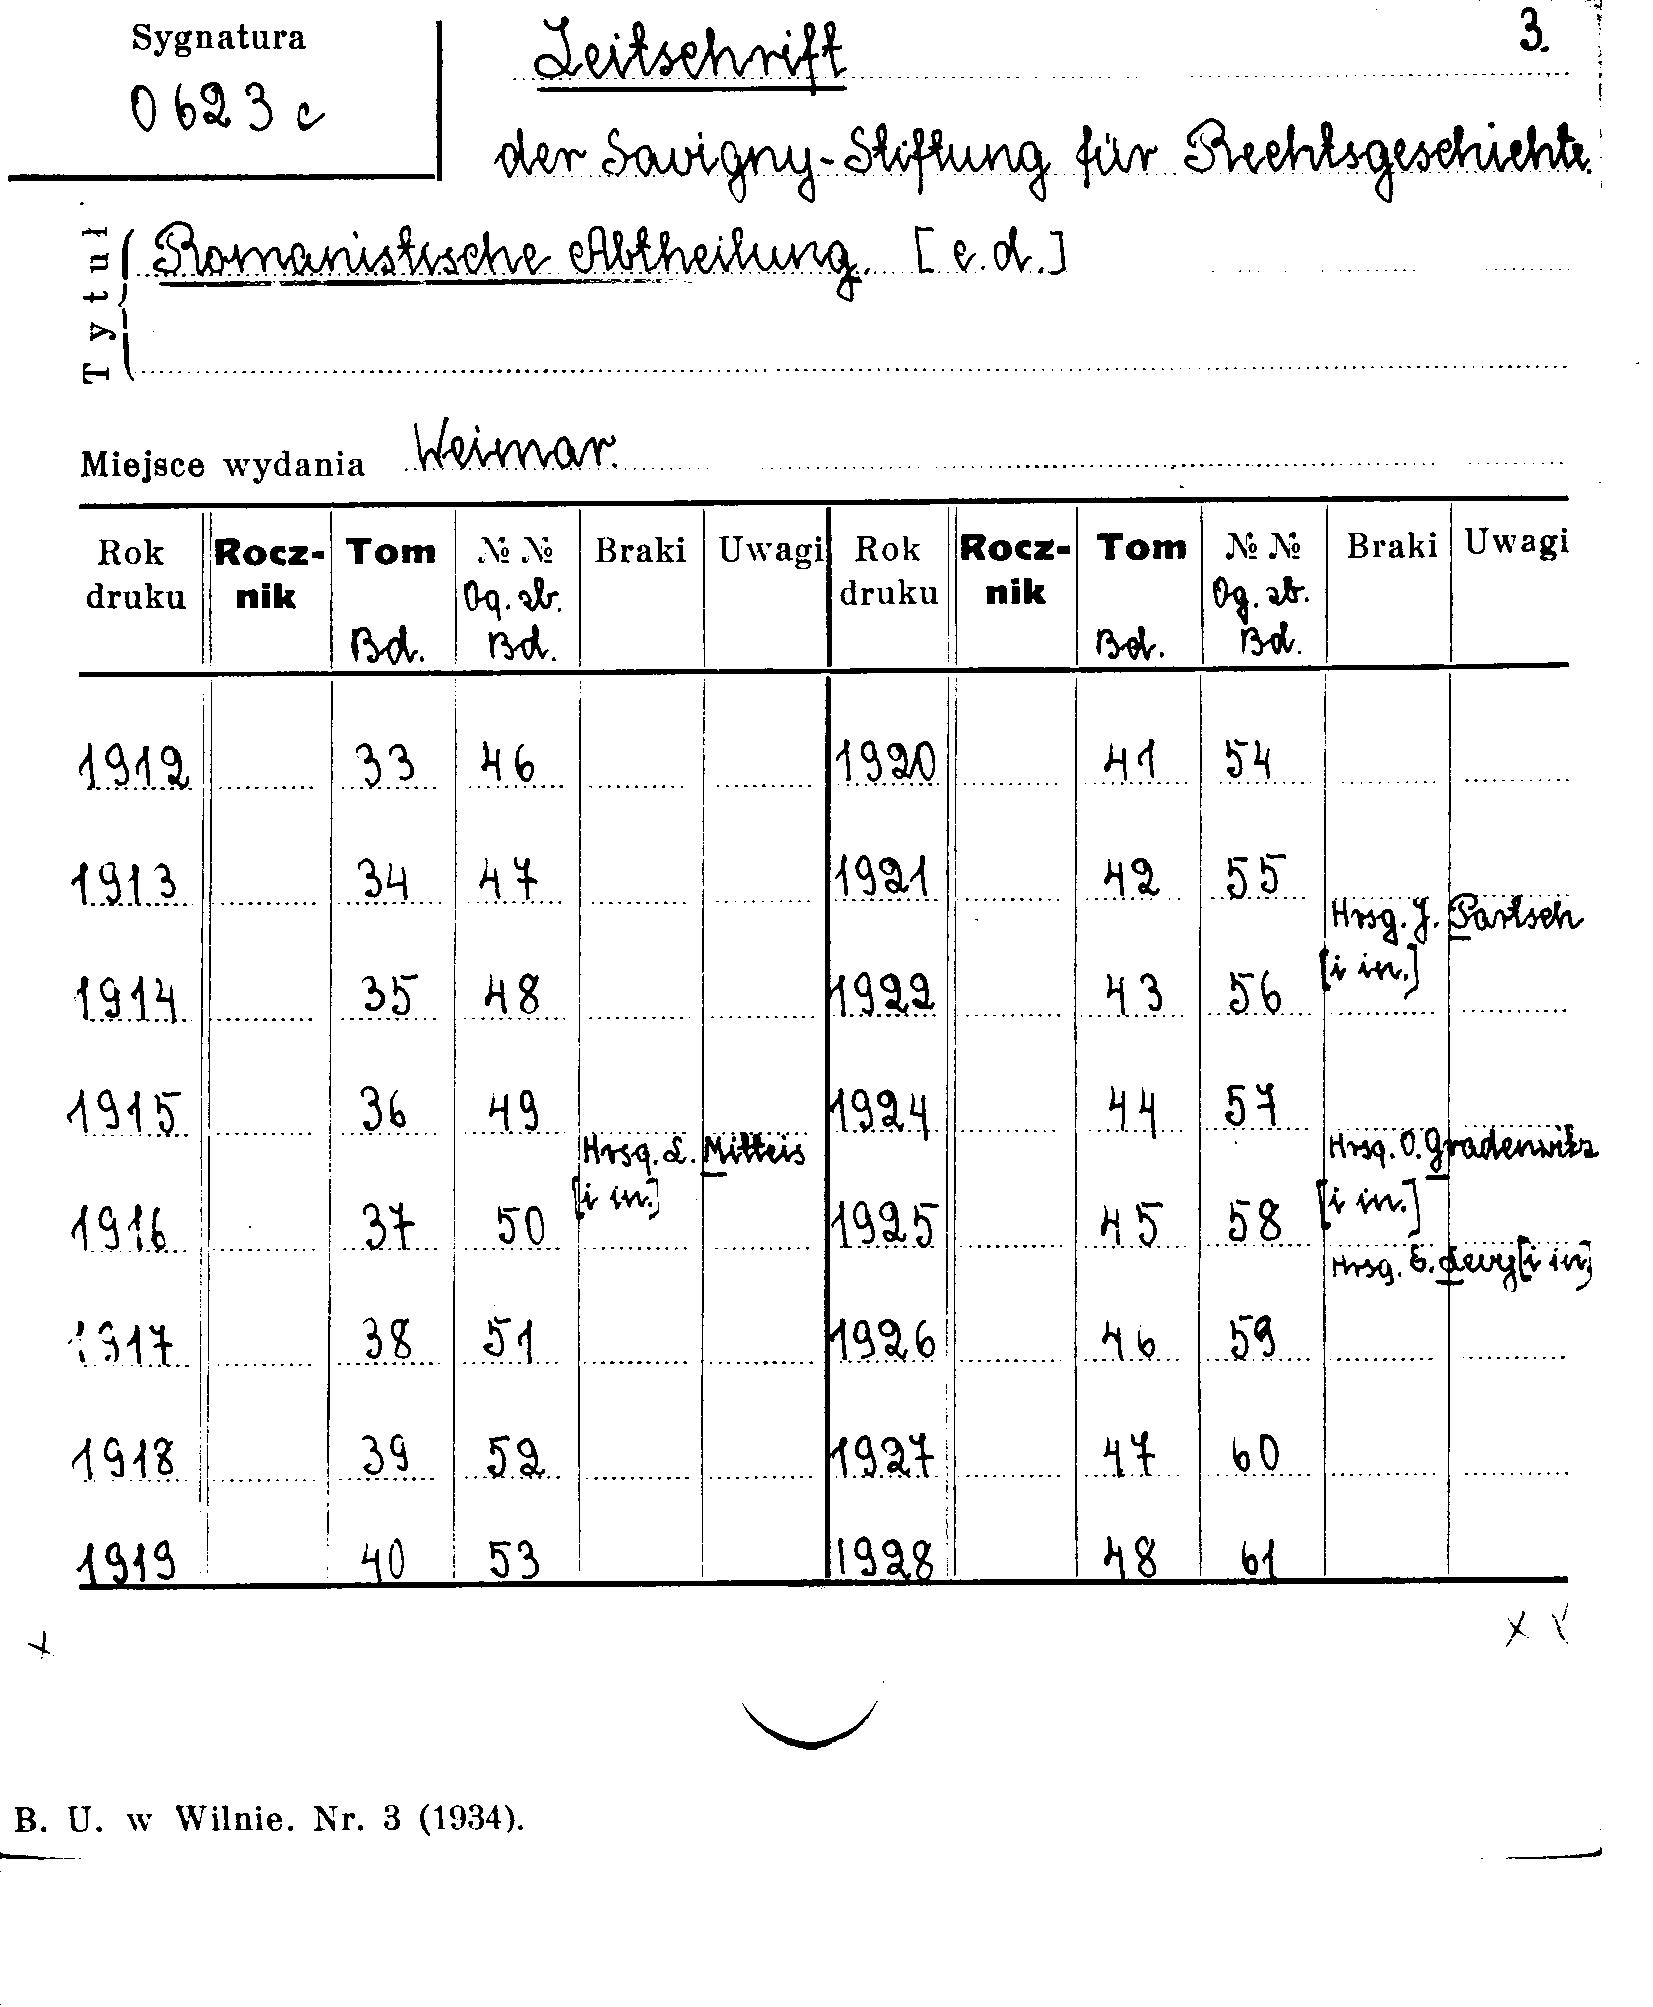 Sygnatura
0623c
Zeitschrift
3.
der Savigny-Stiftung für Rechtsgeschichte.
Tytuł
Romanistische Abtheilung. [c.d.]
Miejsce wydania Weimar.
Rok druku Rocz-nik Tom Bd. № № Og. zb. Bd. Braki Uwagi Rok druku Rocz-nik Tom Bd. № № Og. zb. Bd. Braki Uwagi
1912 33 46 1920 41 54
1913 34 47 1921 42 55
Hrsg. J. Partsch
[i in.]
1914 35 48 1922 43 56
1915 36 49 1924 44 57
Hrsg. L. Mitteis Hrsg. O. Gradenwitz
[i in.] [i in.]
1916 37 50 1925 45 58
Hrsg. E. Levy [i in.]
1917 38 51 1926 46 59
1918 39 52 1927 47 60
1919 40 53 1928 48 61
x x
B. U. w Wilnie. Nr. 3 (1934).